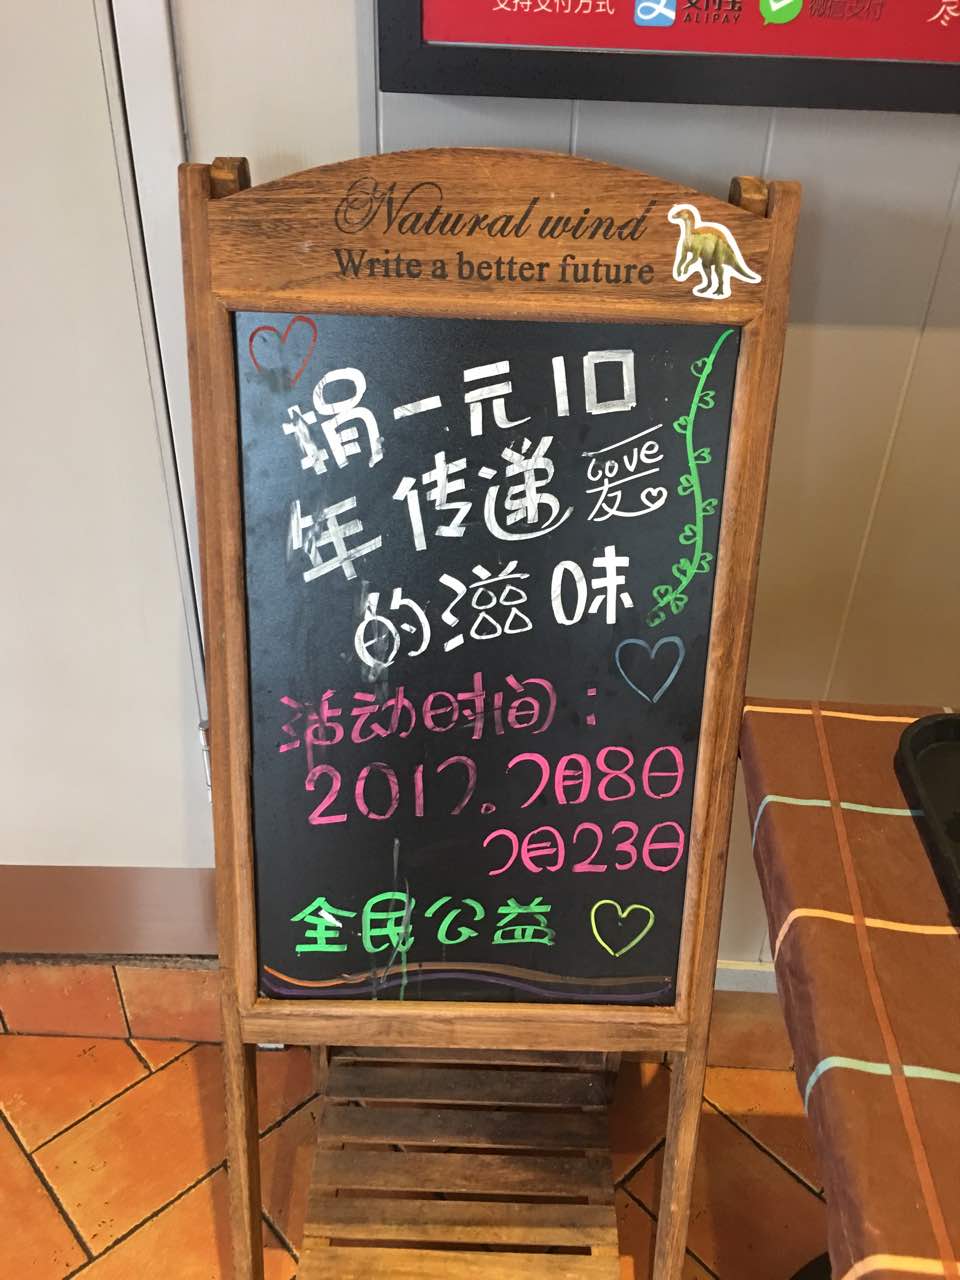 支持支付方式 支付宝 ALIPAY 微信支付
Natural wind
Write a better future
捐一元10
年传递爱 Love
的滋味
活动时间：
2017.7月8日
7月23日
全民公益